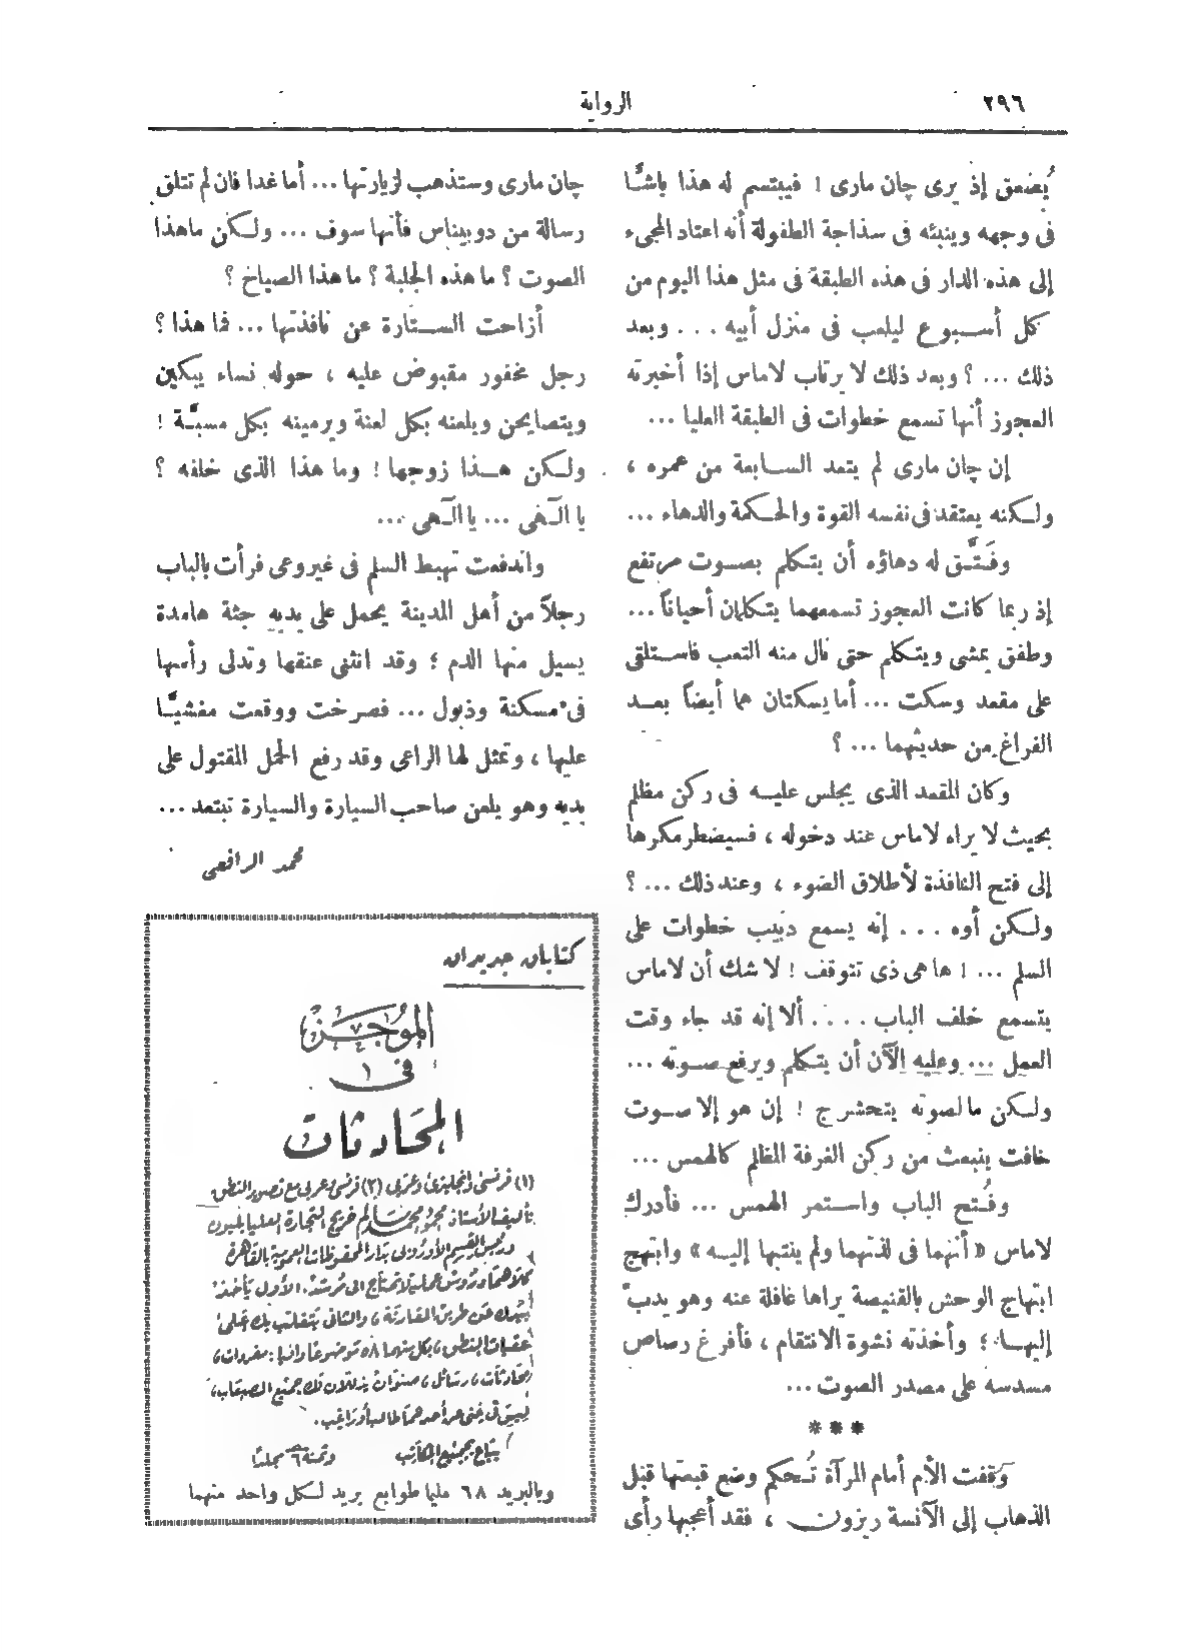 ٢٩٦
الرواية
يُصعق إذ يرى چان مارى ! فيبتسم له هذا باشًّا
فى وجهه وينبئه فى سذاجة الطفولة أنه اعتاد المجىء
إلى هذه الدار فى هذه الطبقة فى مثل هذا اليوم من
كل أسبوع ليلعب فى منزل أبيه . . . وبعد
ذلك ... ؟ وبعد ذلك لا يرتاب لاماس إذا أخبرته
العجوز أنها تسمع خطوات فى الطبقة العليا ...
إن چان مارى لم يتعد السابعة من عمره ،
ولكنه يعتقد فى نفسه القوة والحكمة والدهاء ...
وفَتَّق له دهاؤه أن يتكلم بصوت مرتفع
إذ ربما كانت العجوز تسمعهما يتكلمان أحياناً ...
وطفق يمشى ويتكلم حتى نال منه التعب فاستلقى
على مقعد وسكت ... أما يسكتان هما أيضاً بعد
الفراغ من حديثهما ... ؟
وكان المقعد الذى يجلس عليه فى ركن مظلم
بحيث لا يراه لاماس عند دخوله ، فسيضطر مكرها
إلى فتح النافذة لأطلاق الضوء ، وعند ذلك ... ؟
ولكن أوه . . . إنه يسمع دبيب خطوات على
السلم ... ! ها هى ذى تتوقف ! لا شك أن لاماس
يتسمع خلف الباب . . . . ألا إنه قد جاء وقت
العمل ... وعليه الآن أن يتكلم ويرفع صوته ...
ولكن ما لصوته يتحشرج ! إن هو إلا صوت
خافت ينبعث من ركن الغرفة المظلم كالهمس ...
وفُتح الباب واستمر الهمس ... فأدرك
لاماس « أنهما فى لذتهما ولم ينتبها إليه » وابتهج
ابتهاج الوحش بالقنيصة يراها غافلة عنه وهو يدبّ
إليها ؛ وأخذته نشوة الانتقام ، فأفرغ رصاص
مسدسه على مصدر الصوت ...
***
وَقفت الأم أمام المرآة تُحكم وضع قبعتها قبل
الذهاب إلى الآنسة ريزون ، فقد أعجبها رأى
چان مارى وستذهب لزيارتها ... أما غدا فان لم تتلق
رسالة من دوبيناس فأنها سوف ... ولكن ماهذا
الصوت ؟ ما هذه الجلبة ؟ ما هذا الصياح ؟
أزاحت الستارة عن نافذتها ... فما هذا ؟
رجل مخفور مقبوض عليه ، حوله نساء يبكين
ويتصايحن ويلعنه بكل لعنة ويرمينه بكل مسبَّة !
ولكن هذا زوجها ! وما هذا الذى خلفه ؟
يا الٓهى ... يا الٓهى ...
واندفعت تهبط السلم فى غير وعى فرأت بالباب
رجلاً من أهل المدينة يحمل على يديه جثة هامدة
يسيل منها الدم ؛ وقد انثنى عنقها وتدلى رأسها
فى مسكنة وذبول ... فصرخت ووقعت مغشيًّا
عليها ، وتمثل لها الراعى وقد رفع الحمل المقتول على
يديه وهو يلعن صاحب السيارة والسيارة تبتعد ...
محمد الرافعى
كتابان جديدان
الموجز
فى
المحادثات
(١) فرنسى وانجليزى وعربى (٢) فرنسى وعربى مع تصوير النطق
تأليف الأستاذ محمود محمد سالم خريج التجارة العليا بليون
ورئيس القسم الأوروبى بدار المحفوظات العمومية بالقاهرة
كلاهما دروس عملية لا تحتاج الى مرشد . الأول يأخذ
بيدك عن طريق المقارنة ، والثانى يتغلب بك على
عقبات النطق ، بكل منهما ٥٨ موضوعا وافيا : مفردات ،
محادثات ، رسائل ، صنوان يذللان لك جميع الصعاب ،
ليس فى غنى عن أحدهما طالب أو راغب .
يباع بجميع المكاتب وثمنه ٦ مجلدًا
وبالبريد ٦٨ مليما طوابع بريد لكل واحد منهما